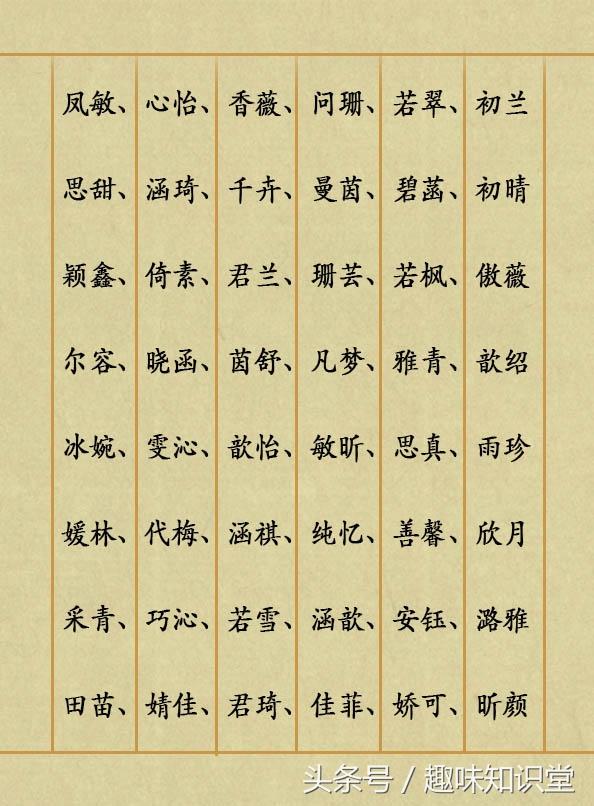 凤敏、心怡、香薇、问珊、若翠、初兰
思甜、涵琦、千卉、曼茵、碧菡、初晴
颖鑫、倚素、君兰、珊芸、若枫、傲薇
尔容、晓函、茵舒、凡梦、雅青、歆绍
冰婉、雯沁、歆怡、敏昕、思真、雨珍
媛林、代梅、涵祺、纯忆、善馨、欣月
采青、巧沁、若雪、涵歆、安钰、潞雅
田苗、婧佳、君琦、佳菲、娇可、昕颜
头条号 / 趣味知识堂